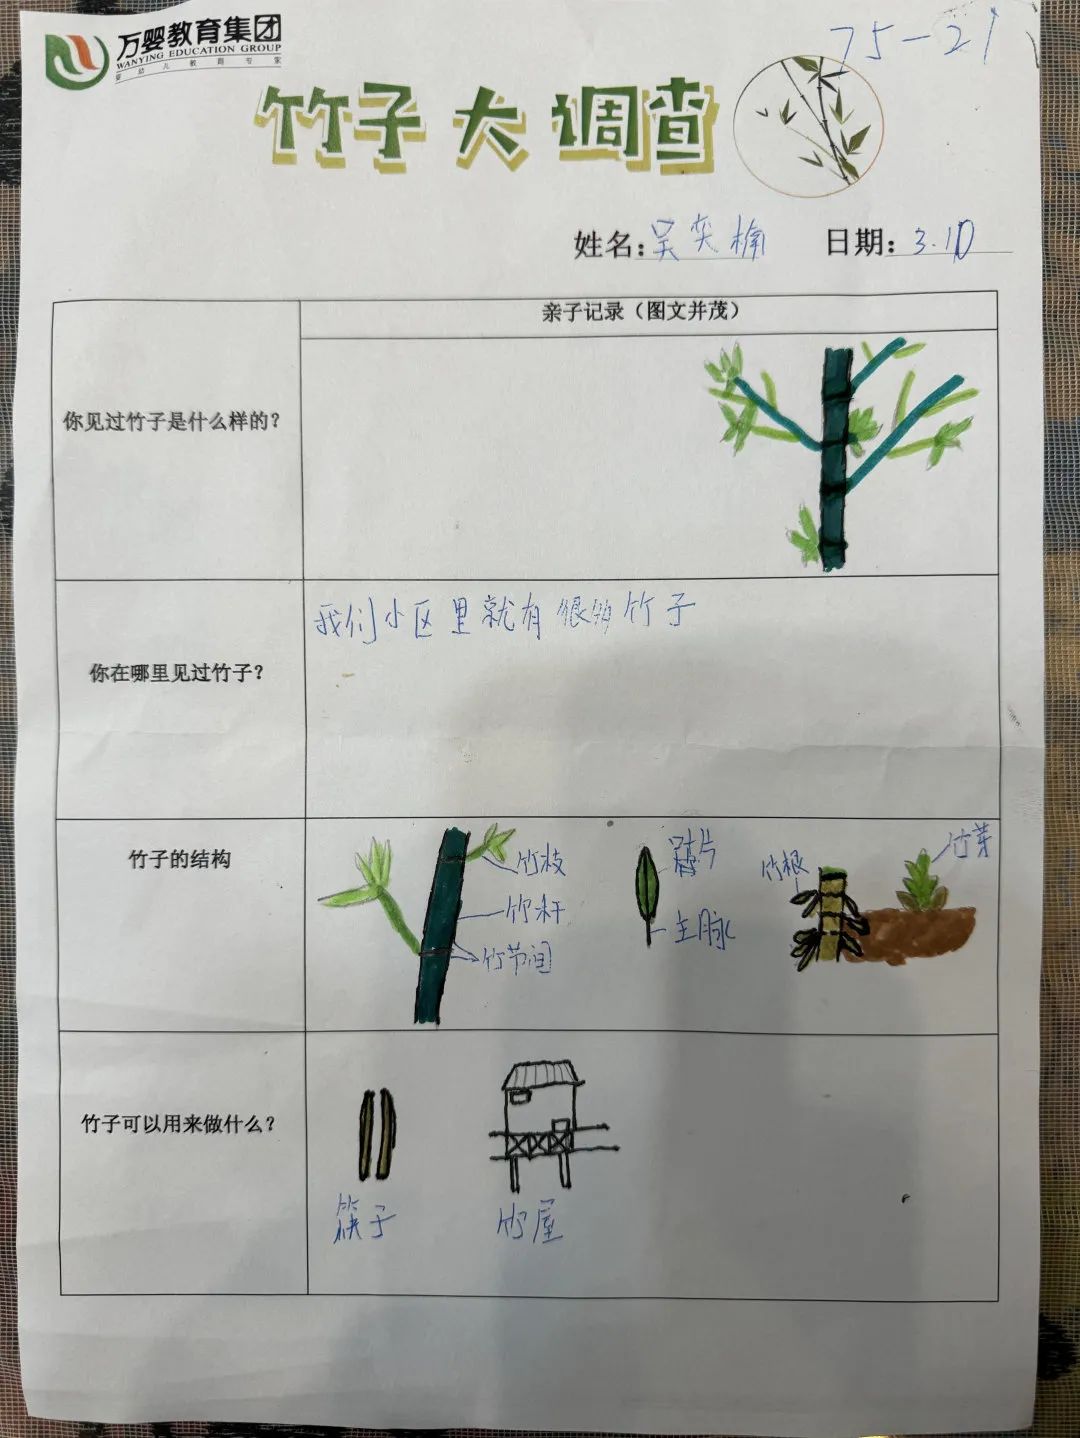 万婴教育集团
WANYING EDUCATION GROUP
婴幼儿教育专家
75-21
竹子大调查
姓名:吴奕楠 日期:3.10
亲子记录(图文并茂)
你见过竹子是什么样的?
你在哪里见过竹子?
我们小区里就有很多竹子
竹子的结构
竹枝
竹秆
竹节间
片
主脉
竹根
竹芽
竹子可以用来做什么?
筷子
竹屋